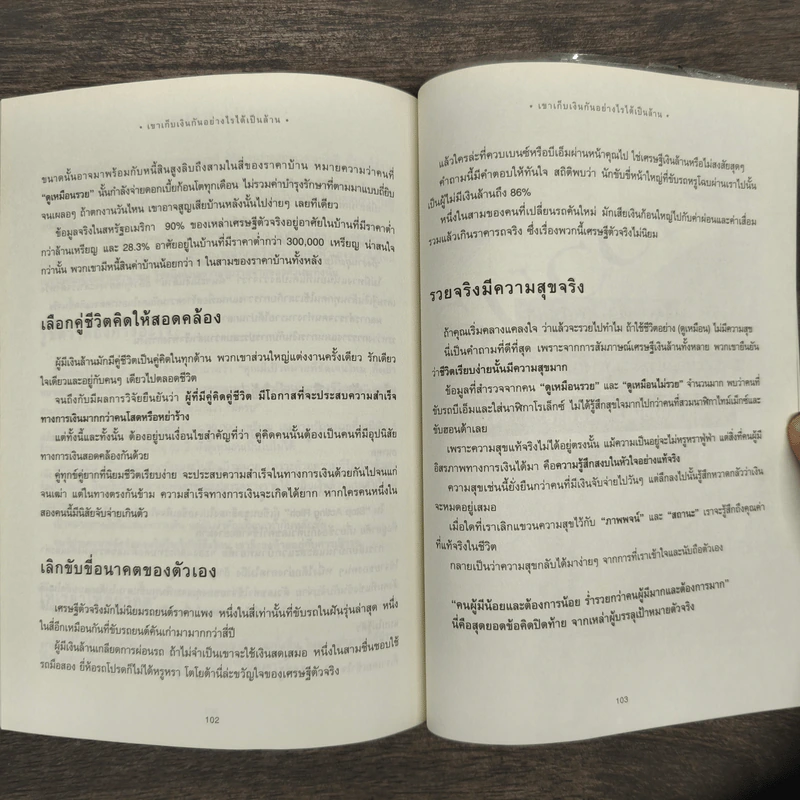 • เขาเก็บเงินกันอย่างไรได้เป็นล้าน •
ขนาดนั้นอาจมาพร้อมกับหนี้สินสูงลิบถึงสามในสี่ของราคาบ้าน หมายความว่าคนที่
“ดูเหมือนรวย” นั้นกำลังจ่ายดอกเบี้ยก้อนโตทุกเดือน ไม่รวมค่าบำรุงรักษาที่ตามมาแบบถี่ยิบ
จนเผลอๆ ถ้าตกงานวันไหน เขาอาจสูญเสียบ้านหลังนั้นไปง่ายๆ เลยทีเดียว
ข้อมูลจริงในสหรัฐอเมริกา 90% ของเหล่าเศรษฐีตัวจริงอยู่อาศัยในบ้านที่มีราคาต่ำ
กว่าล้านเหรียญ และ 28.3% อาศัยอยู่ในบ้านที่มีราคาต่ำกว่า 300,000 เหรียญ น่าสนใจ
กว่านั้น พวกเขามีหนี้สินค่าบ้านน้อยกว่า 1 ในสามของราคาบ้านทั้งหลัง
เลือกคู่ชีวิตคิดให้สอดคล้อง
ผู้มีเงินล้านมักมีคู่ชีวิตเป็นคู่คิดในทุกด้าน พวกเขาส่วนใหญ่แต่งงานครั้งเดียว รักเดียว
ใจเดียวและอยู่กับคนๆ เดียวไปตลอดชีวิต
จนถึงกับมีผลการวิจัยยืนยันว่า ผู้ที่มีคู่คิดคู่ชีวิต มีโอกาสที่จะประสบความสำเร็จ
ทางการเงินมากกว่าคนโสดหรือหย่าร้าง
แต่ทั้งนี้และทั้งนั้น ต้องอยู่บนเงื่อนไขสำคัญที่ว่า คู่คิดคนนั้นต้องเป็นคนที่มีอุปนิสัย
ทางการเงินสอดคล้องกันด้วย
คู่ทุกข์คู่ยากที่นิยมชีวิตเรียบง่าย จะประสบความสำเร็จในทางการเงินด้วยกันไปจนแก่
จนเฒ่า แต่ในทางตรงกันข้าม ความสำเร็จทางการเงินจะเกิดได้ยาก หากใครคนหนึ่งใน
สองคนนี้มีนิสัยจับจ่ายเกินตัว
เลิกขับขี่อนาคตของตัวเอง
เศรษฐีตัวจริงมักไม่นิยมรถยนต์ราคาแพง หนึ่งในสี่เท่านั้นที่ขับรถในฝันรุ่นล่าสุด หนึ่ง
ในสี่อีกเหมือนกันที่ขับรถยนต์คันเก่ามามากกว่าสี่ปี
ผู้มีเงินล้านเกลียดการผ่อนรถ ถ้าไม่จำเป็นเขาจะใช้เงินสดเสมอ หนึ่งในสามชื่นชอบใช้
รถมือสอง ยี่ห้อรถโปรดก็ไม่ได้หรูหรา โตโยต้านี่ล่ะขวัญใจของเศรษฐีตัวจริง
102
• เขาเก็บเงินกันอย่างไรได้เป็นล้าน •
แล้วใครล่ะที่ควบเบนซ์หรือบีเอ็มผ่านหน้าคุณไป ใช่เศรษฐีเงินล้านหรือไม่สงสัยสุดๆ
คำถามนี้มีคำตอบให้ทันใจ สถิติพบว่า นักขับขี่หน้าใหญ่ที่ขับรถหรูโฉบผ่านเราไปนั้น
เป็นผู้ไม่มีเงินล้านถึง 86%
หนึ่งในสามของคนที่เปลี่ยนรถคันใหม่ มักเสียเงินก้อนใหญ่ไปกับค่าผ่อนและค่าเสื่อม
รวมแล้วเกินราคารถจริง ซึ่งเรื่องพวกนี้เศรษฐีตัวจริงไม่นิยม
รวยจริงมีความสุขจริง
ถ้าคุณเริ่มคลางแคลงใจ ว่าแล้วจะรวยไปทำไม ถ้าใช้ชีวิตอย่าง (ดูเหมือน) ไม่มีความสุข
นี่เป็นคำถามที่ดีที่สุด เพราะจากการสัมภาษณ์เศรษฐีเงินล้านทั้งหลาย พวกเขายืนยัน
ว่าชีวิตเรียบง่ายนั้นมีความสุขมาก
ข้อมูลที่สำรวจจากคน “ดูเหมือนรวย” และ “ดูเหมือนไม่รวย” จำนวนมาก พบว่าคนที่
ขับรถบีเอ็มและใส่นาฬิกาโรเล็กซ์ ไม่ได้รู้สึกสุขใจมากไปกว่าคนที่สวมนาฬิกาไทม์เม็กซ์และ
ขับฮอนด้าเลย
เพราะความสุขแท้จริงไม่ได้อยู่ตรงนั้น แม้ความเป็นอยู่จะไม่หรูหราฟู่ฟ่า แต่สิ่งที่คนผู้มี
อิสรภาพทางการเงินได้มา คือความรู้สึกสงบในหัวใจอย่างแท้จริง
ความสุขเช่นนี้ยั่งยืนกว่าคนที่มีเงินจับจ่ายไปวันๆ แต่ลึกลงไปนั้นรู้สึกหวาดกลัวว่าเงิน
จะหมดอยู่เสมอ
เมื่อใดที่เราเลิกแขวนความสุขไว้กับ “ภาพพจน์” และ “สถานะ” เราจะรู้สึกถึงคุณค่า
ที่แท้จริงในชีวิต
กลายเป็นว่าความสุขกลับได้มาง่ายๆ จากการที่เราเข้าใจและนับถือตัวเอง
“คนผู้มีน้อยและต้องการน้อย ร่ำรวยกว่าคนผู้มีมากและต้องการมาก”
นี่คือสุดยอดข้อคิดปิดท้าย จากเหล่าผู้บรรลุเป้าหมายตัวจริง
103